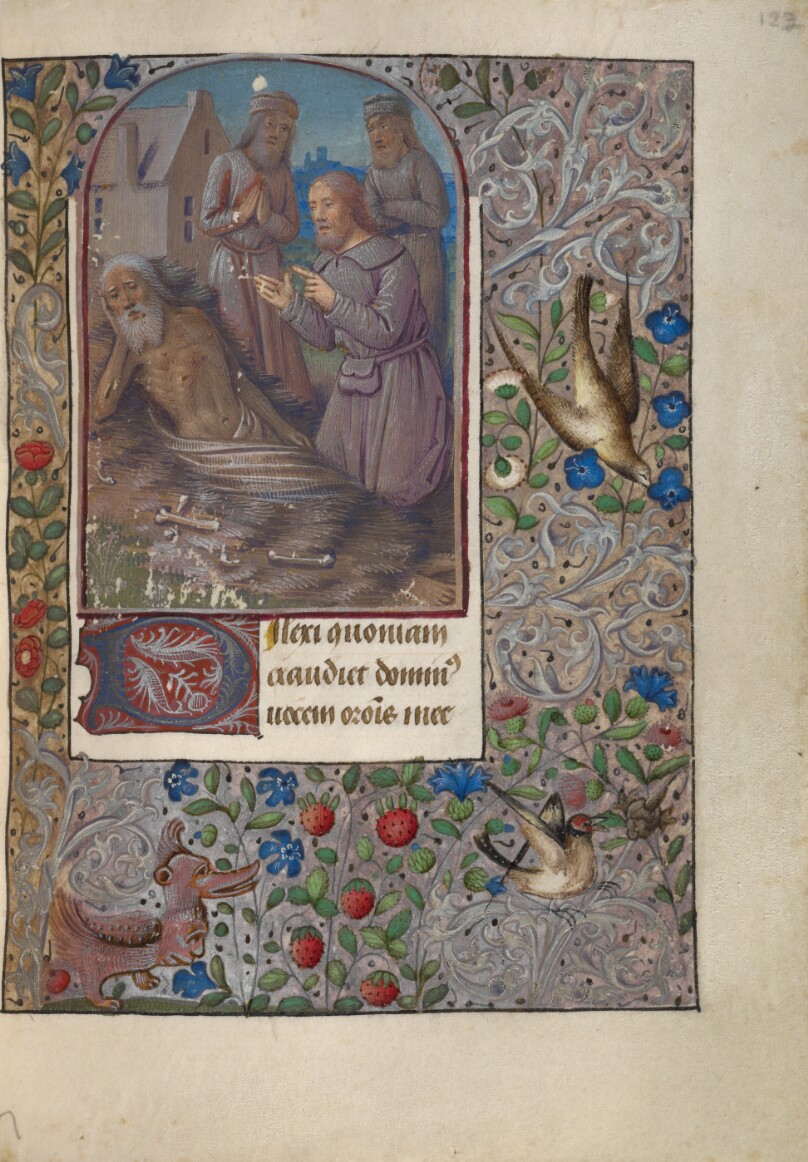 123
Dilexi quoniam
exaudiet domin⁹
uocem oroīs mee